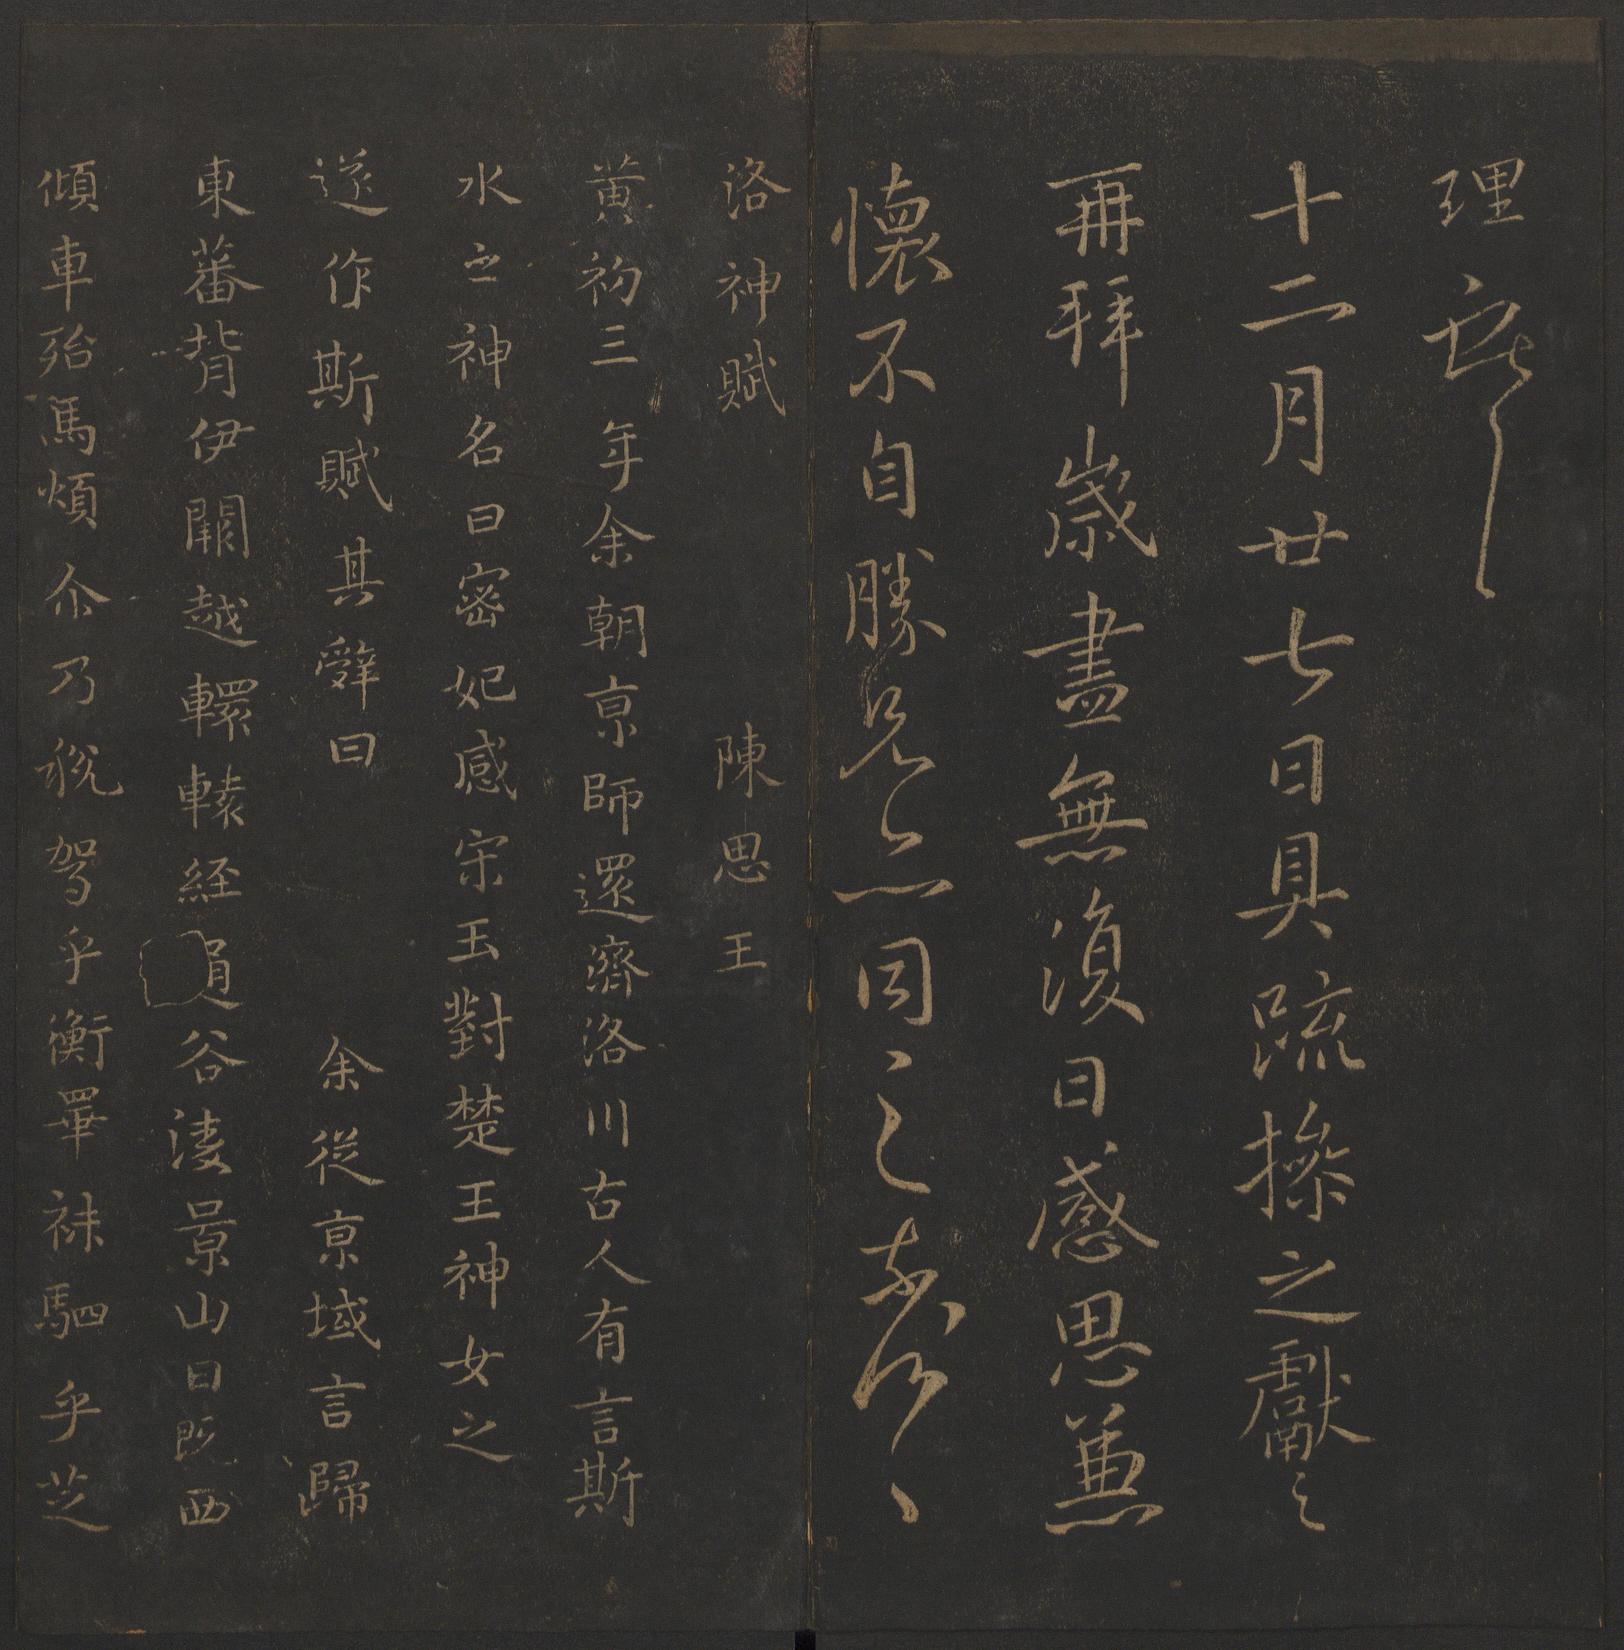 理
十二月廿七日具疏操之獻之
再拜歲盡無復日感思兼
懷不自勝兄亦同
洛神賦　陳思王
黃初三年余朝京師還濟洛川古人有言斯
水之神名曰密妃感宋玉對楚王神女之
遂作斯賦其辭曰　余從京域言歸
東蕃背伊闕越轘轅經通谷淩景山日既西
傾車殆馬煩尒乃稅駕乎衡睪秣駟乎芝